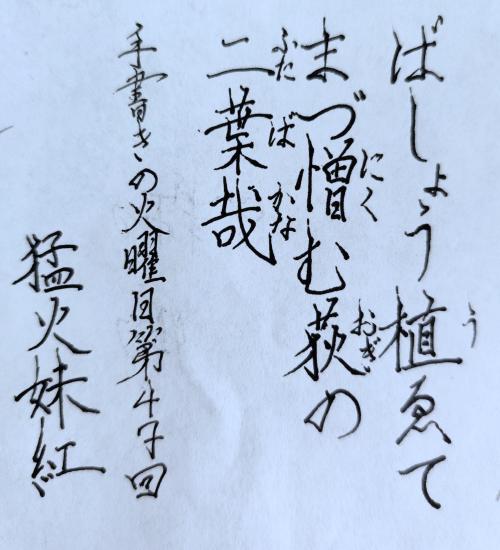 ばしょう植ゑて
まづ憎む荻の
二葉哉
手書きの火曜日第47回
猛火妹紅
う
にく
おぎ
ふたば
かな